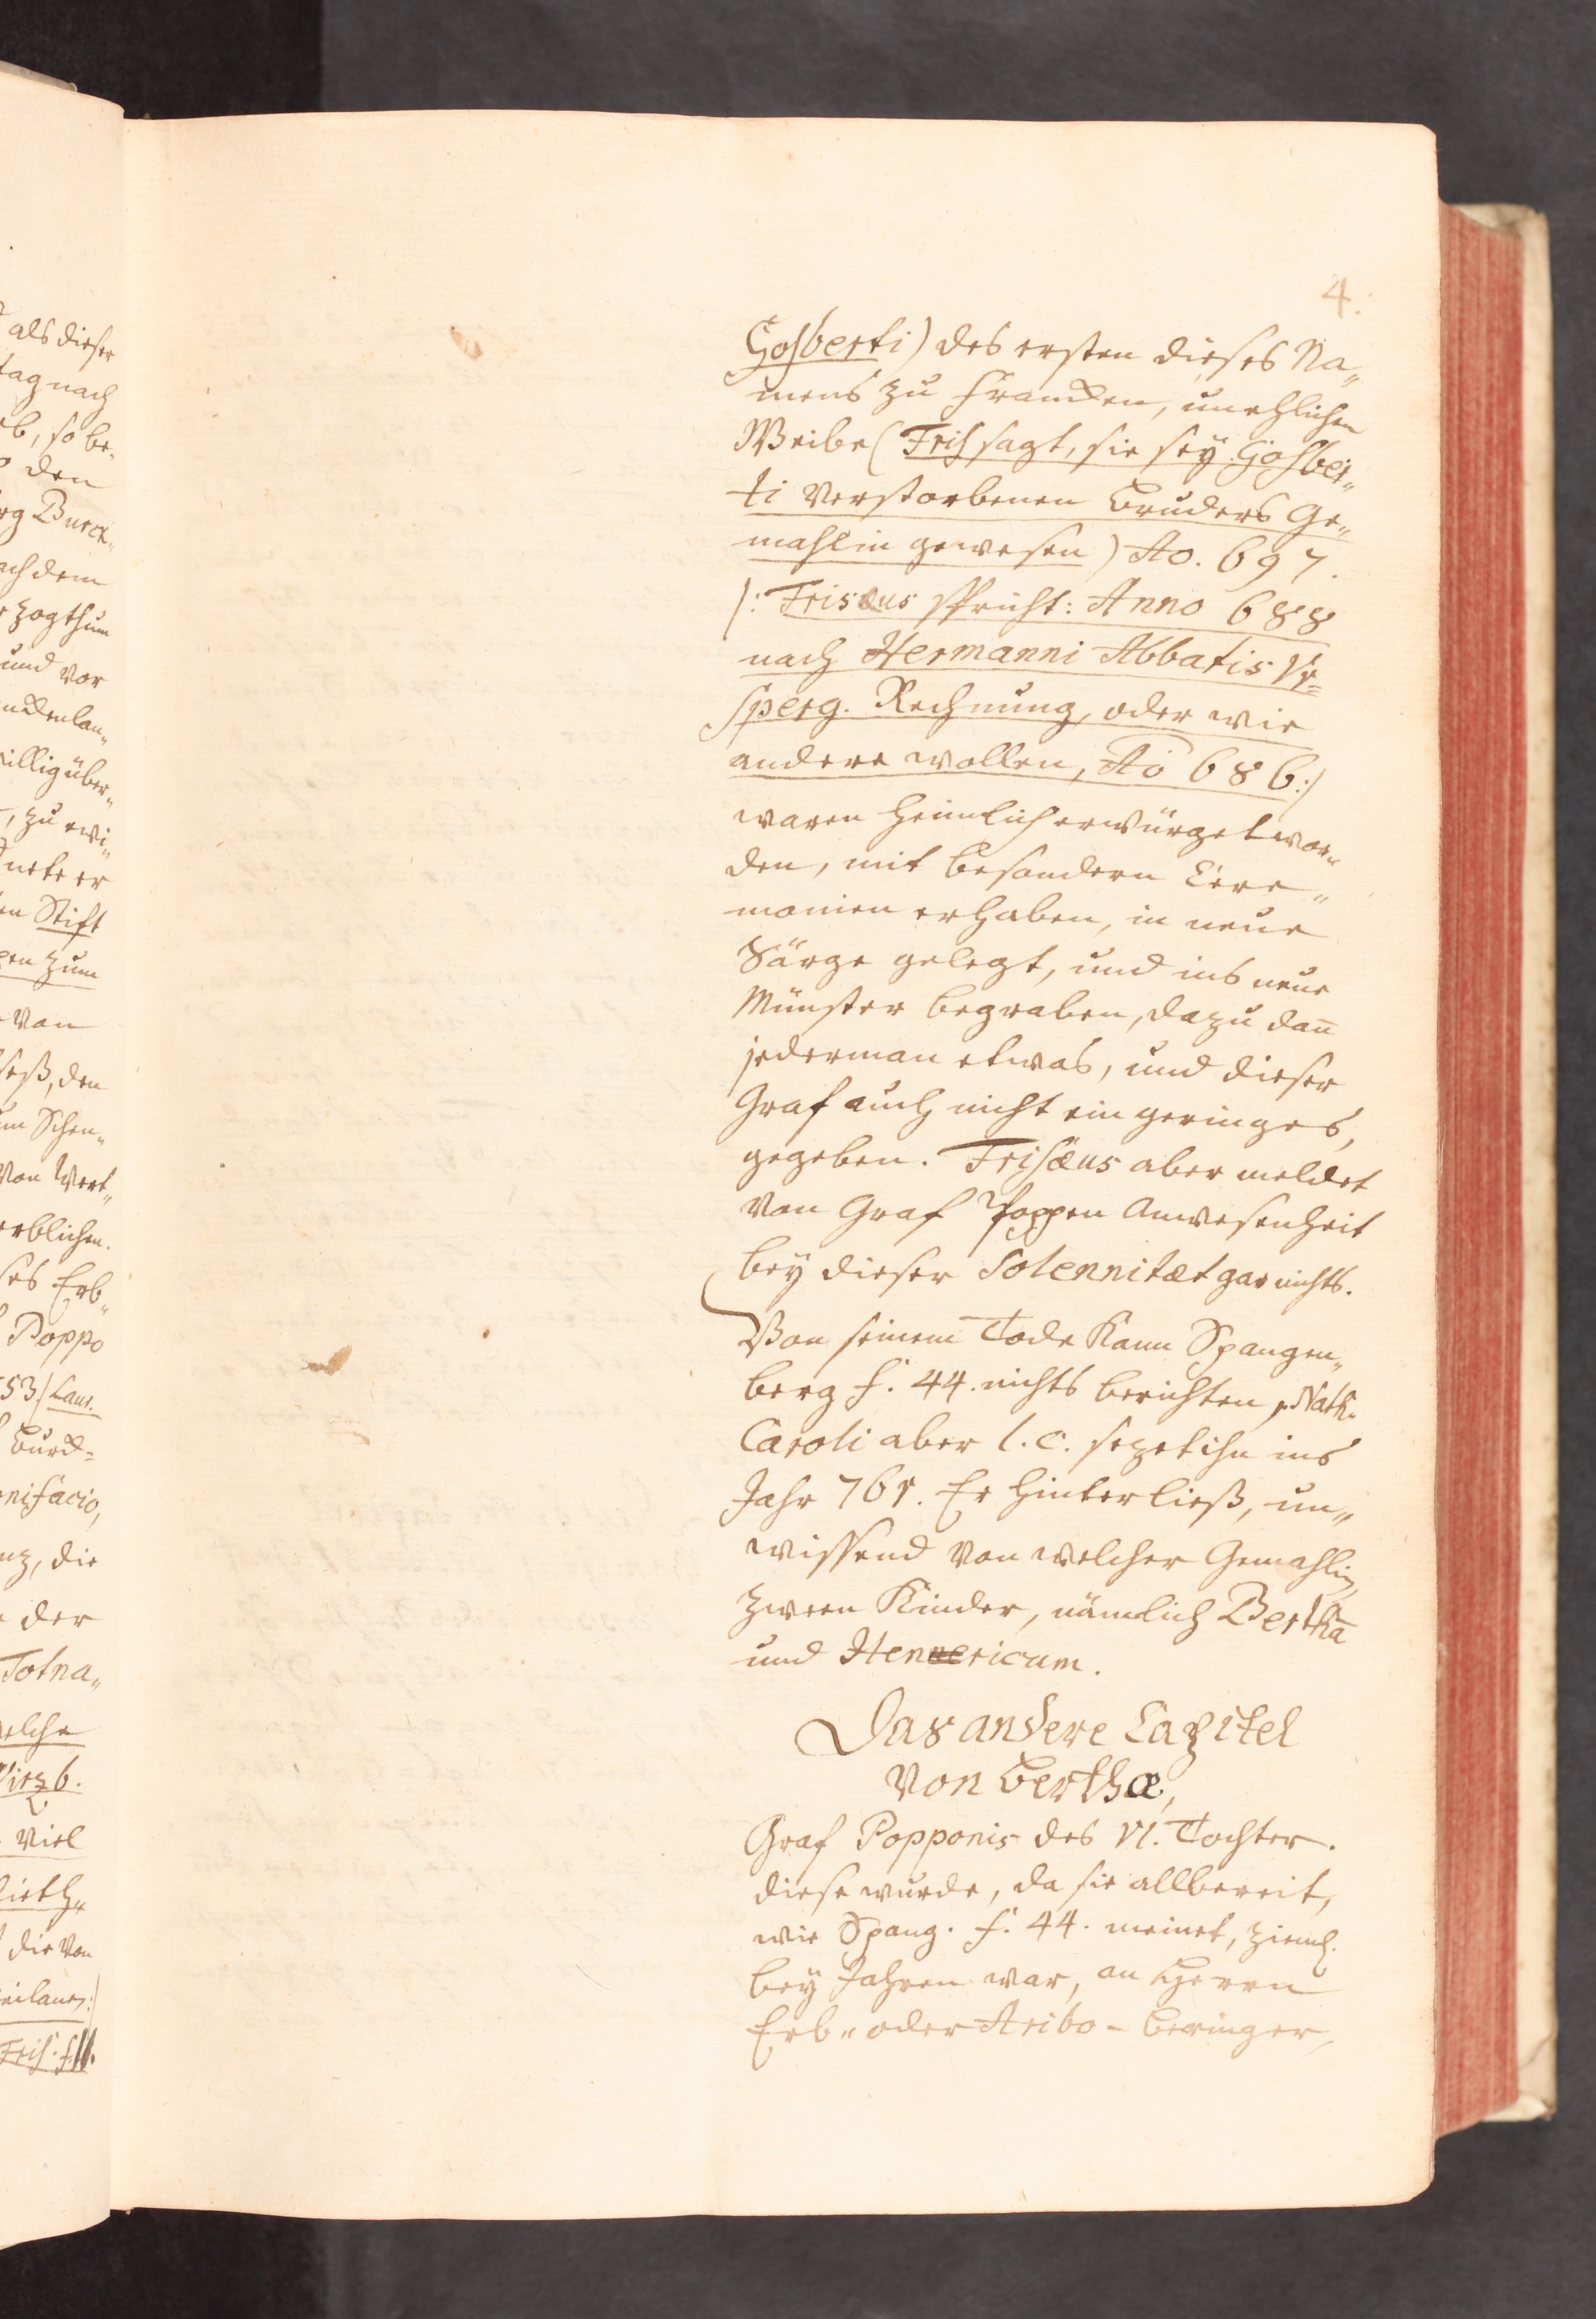 4.
Gosberti) des ersten dieses Na„
mens zu Francken, unehlichen
Weibe (Fris sagt, sie seÿ Gosber„
ti verstorbenen Bruders Ge„
mahlin gewesen) Ao. 697.
/: Frisæus spricht: Anno 688
nach Hermanni Abbatis Vr=
sperg. Rechnung, oder wie
andere wollen, Ao 686:/
waren heimlich erwürget wor„
den, mit besondern Cere„
monien erhaben, in neue
Särge gelegt, und ins neue
Münster begraben, dazu dañ
jederman etwas, und dieser
Graf auch nicht ein geringes,
gegeben. Frisæus aber meldet
von Graf Poppen Anwesenheit
beÿ dieser Solennitæt gar nichts.
Von seinem Tode kann Spangen„
berg f. 44. nichts berichten, Nath.
Caroli aber l. c. sezet ihn ins
Jahr 761. Er hinterließ, un„
wissend von welcher Gemahlin,
zween Kinder, nämlich Berthā
und Hennericum.
Das andere Capitel
von Berthæ,
Graf Popponis des VI. Tochter.
diese wurde, da sie allbereit,
wie Spang. f. 44. meinet, zieml.
beÿ Jahren war, an Herrn
Erb„ oder Aribo - Beringer,
als dieser
tag nach
so be„
den
Burck„
nach dem
zogthum
und vor
über„
zu
Stift
zum
von
den
Schen„
von Wert„
erblichen.
Erb„
Poppo
53/ Laur.
Burck=
nifacio,
die
der
Totna„
welche
viel
die von
Fris. f.